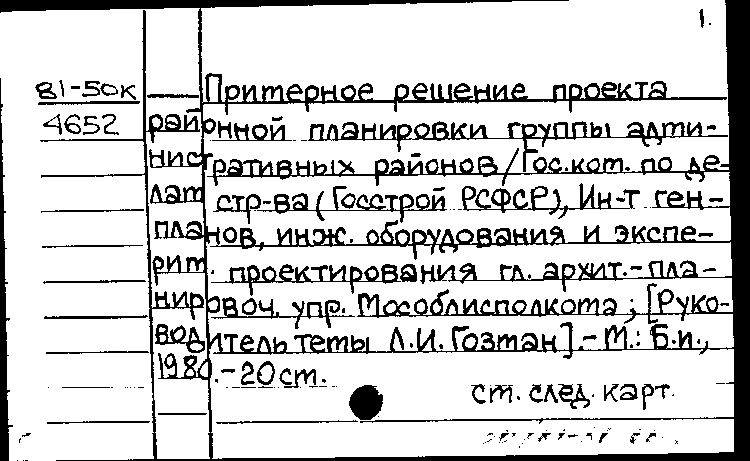 1.
81-50к Примерное решение проекта
4652 районной планировки группы адми-
нистративных районов/Гос.ком. по де-
лам стр-ва (Госстрой РСФСР), Ин-т ген-
планов, инж. оборудования и экспе-
рим. проектирования гл. архит.-пла-
нировоч. упр. Мособлисполкома ; [Руко-
водитель темы Л.И. Гозман].- М.: Б.и.,
1980.-20 см.
см. след. карт.